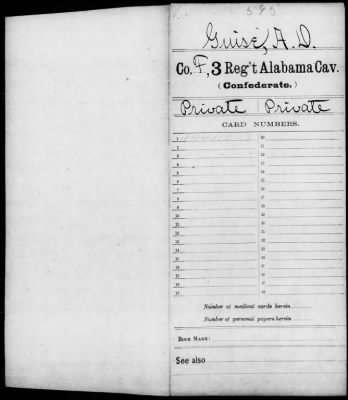 595
Guise, A. D.
Co. F, 3 Reg't Alabama Cav.
(Confederate.)
Private | Private
CARD NUMBERS.
1 20
2 21
3 22
4 23
5 24
6 25
7 26
8 27
9 28
10 29
11 30
12 31
13 32
14 33
15 34
16 35
17 36
18 37
19 38
Number of medical cards herein
Number of personal papers herein
BOOK MARK:
See also